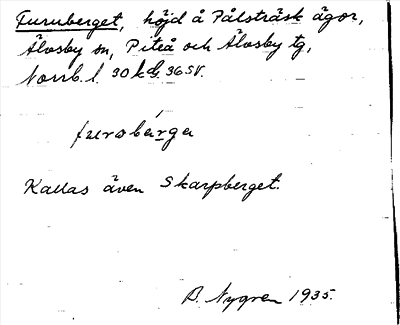 Furuberget, höjd å Pålsträsk ägor,
Älvsby sn, Piteå och Älvsby tg,
Norrb. l. 30 kd, 36 SV.
furobárga
Kallas även Skarpberget.
B. Nygren 1935.